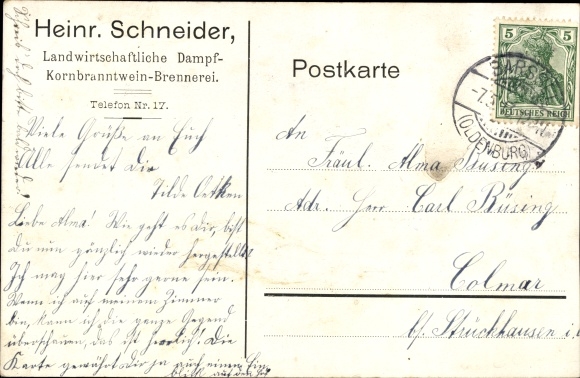 Heinr. Schneider,
Landwirtschaftliche Dampf-
Kornbranntwein-Brennerei.
Telefon Nr. 17.
Postkarte
5 5
DEUTSCHES REICH
(OLDENBURG)
Viele Grüße an Euch
Alle sendet die
Tilde Oetken
Liebe Alma! Wie geht es dir, bist
Du nun gänzlich wieder hergestellt
Ich mag hier sehr gerne sein.
Wenn ich auf meinem Zimmer
bin, kann ich die ganze Gegend
überschauen, das ist herrlich! Die
Karte gewährt dir ja auch einen Ein-
blick auf den
An
Fräul. Alma Rüsing
Adr. Herr Carl Rüsing
Colmar
b/ Strückhausen i.